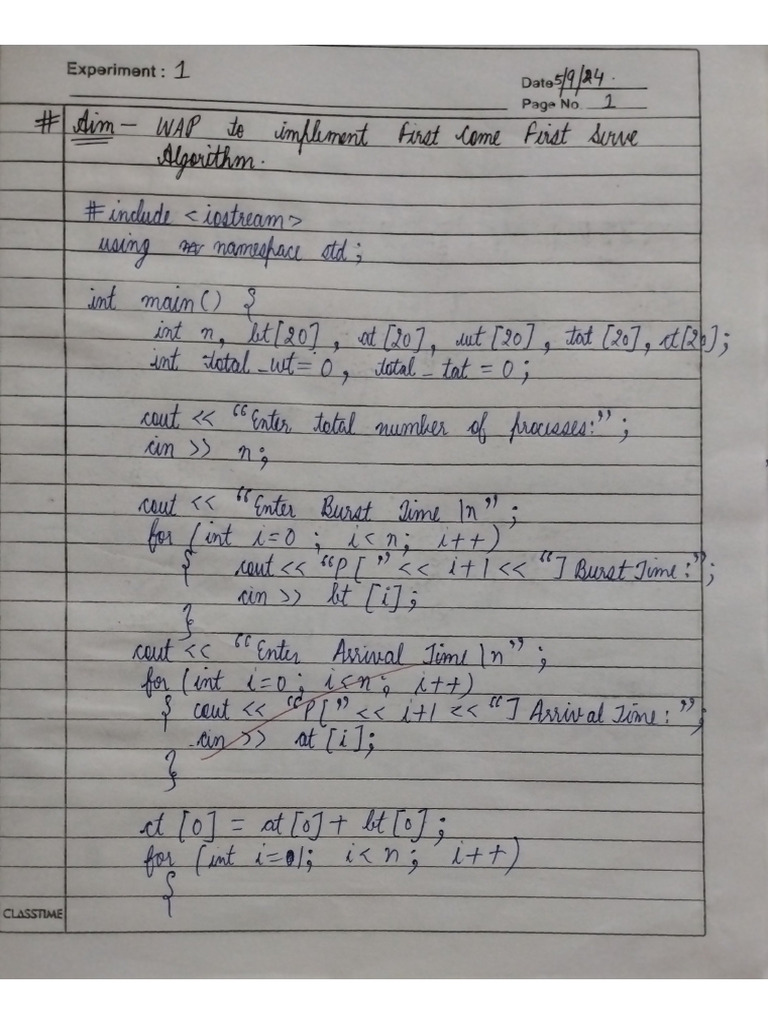 Experiment : 1
Date 5/9/24.
Page No. 1
# Aim - WAP to implement First Come First Serve
Algorithm.
#include <iostream>
using namespace std;
int main() {
int n, bt[20], at[20], wt[20], tat[20], ct[20];
int total_wt = 0, total_tat = 0;
cout << "Enter total number of processes:";
cin >> n;
cout << "Enter Burst Time \n";
for (int i=0 ; i<n; i++)
{ cout << "P[" << i+1 << "] Burst Time:";
cin >> bt[i];
}
cout << "Enter Arrival Time \n";
for (int i=0; i<n; i++)
{ cout << "P[" << i+1 << "] Arrival Time:";
cin >> at[i];
}
ct[0] = at[0] + bt[0];
for (int i=1; i<n; i++)
{
CLASSTIME